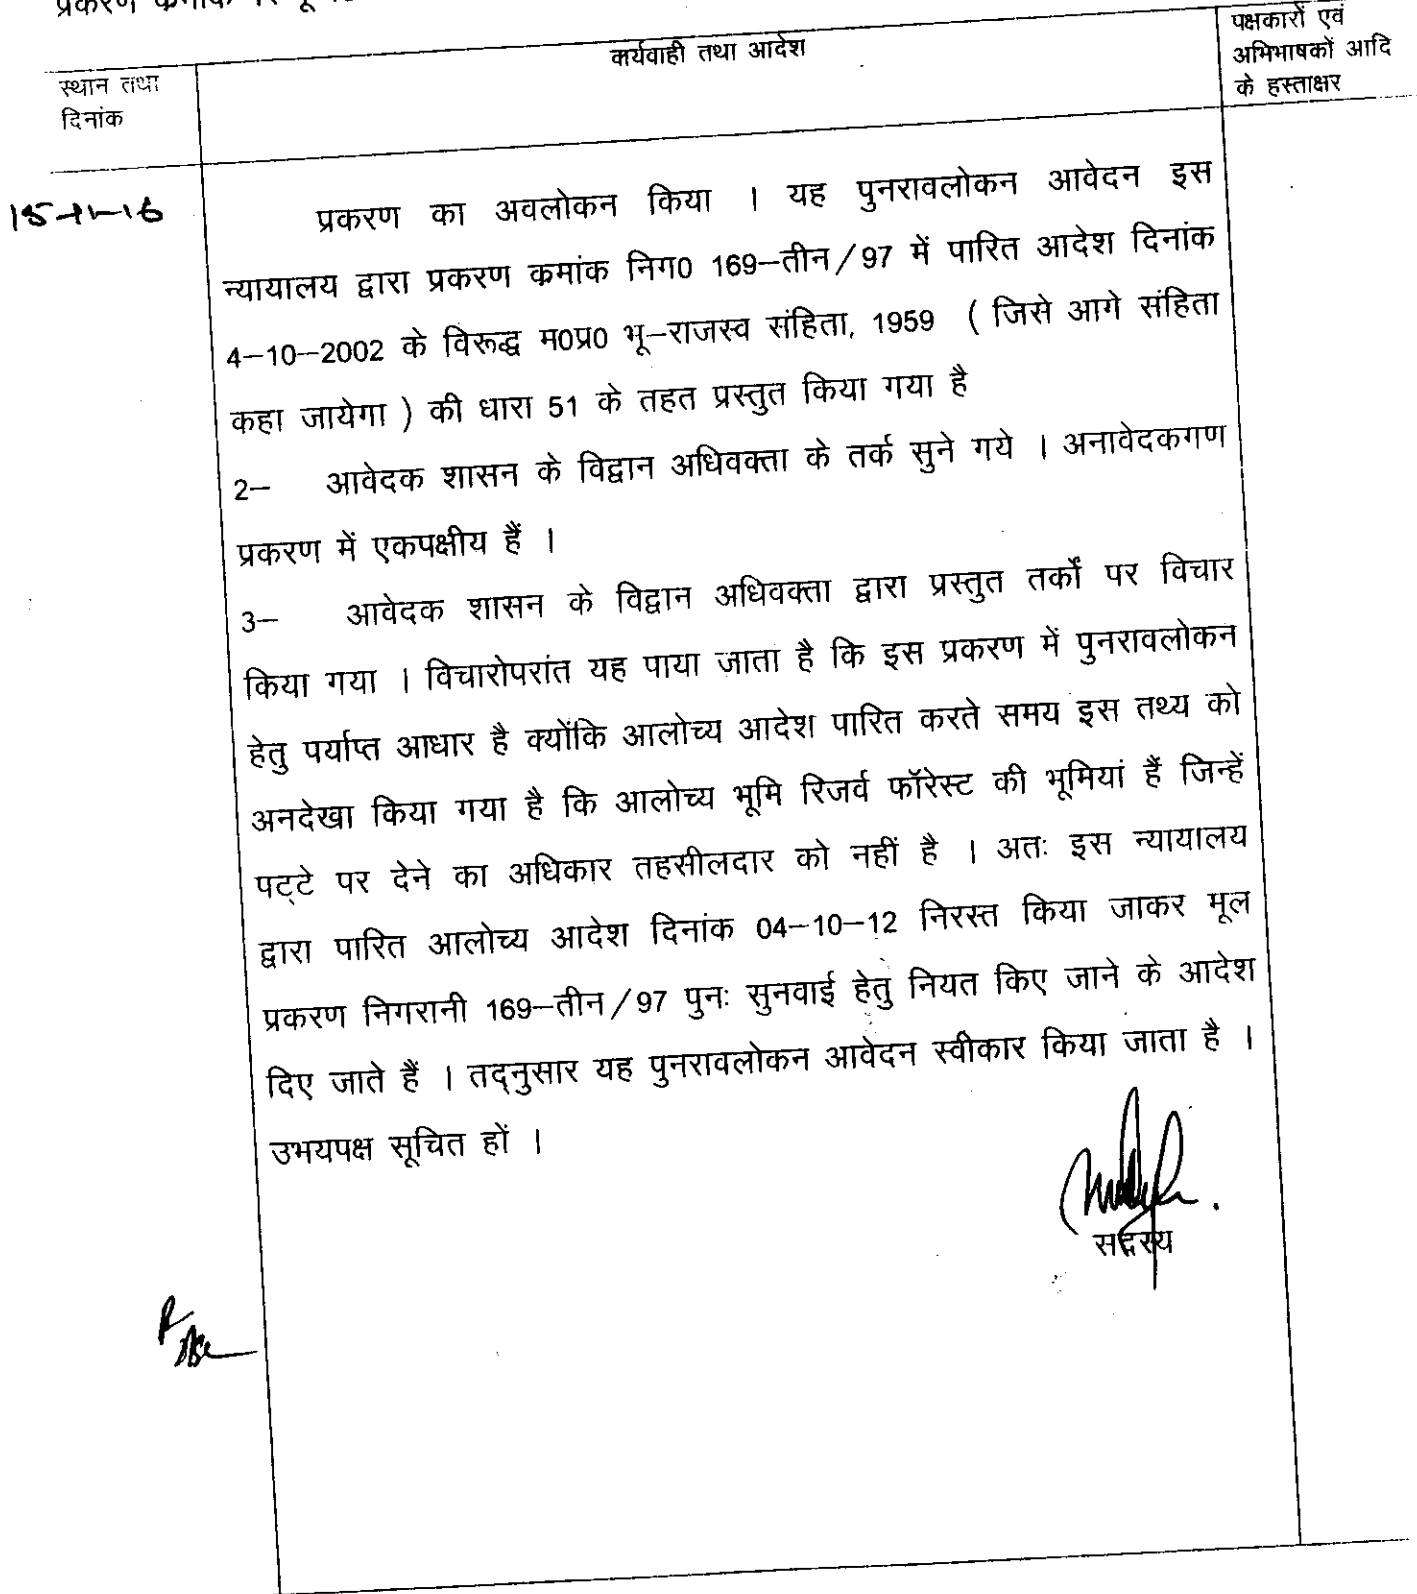 प्रकरण क्रमांक
स्थान तथा
दिनांक
कार्यवाही तथा आदेश
पक्षकारों एवं
अभिभाषकों आदि
के हस्ताक्षर
15-11-16
प्रकरण का अवलोकन किया । यह पुनरावलोकन आवेदन इस
न्यायालय द्वारा प्रकरण क्रमांक निग0 169–तीन/97 में पारित आदेश दिनांक
4–10–2002 के विरूद्ध म0प्र0 भू–राजस्व संहिता, 1959 ( जिसे आगे संहिता
कहा जायेगा ) की धारा 51 के तहत प्रस्तुत किया गया है
2– आवेदक शासन के विद्वान अधिवक्ता के तर्क सुने गये । अनावेदकगण
प्रकरण में एकपक्षीय हैं ।
3– आवेदक शासन के विद्वान अधिवक्ता द्वारा प्रस्तुत तर्कों पर विचार
किया गया । विचारोपरांत यह पाया जाता है कि इस प्रकरण में पुनरावलोकन
हेतु पर्याप्त आधार है क्योंकि आलोच्य आदेश पारित करते समय इस तथ्य को
अनदेखा किया गया है कि आलोच्य भूमि रिजर्व फॉरेस्ट की भूमियां हैं जिन्हें
पट्टे पर देने का अधिकार तहसीलदार को नहीं है । अतः इस न्यायालय
द्वारा पारित आलोच्य आदेश दिनांक 04–10–12 निरस्त किया जाकर मूल
प्रकरण निगरानी 169–तीन/97 पुनः सुनवाई हेतु नियत किए जाने के आदेश
दिए जाते हैं । तद्नुसार यह पुनरावलोकन आवेदन स्वीकार किया जाता है ।
उभयपक्ष सूचित हों ।
सदस्य